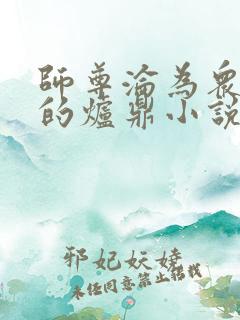 師尊淪為眾
的爐鼎小說
邪妃妖嬈
未经同意禁止搭载